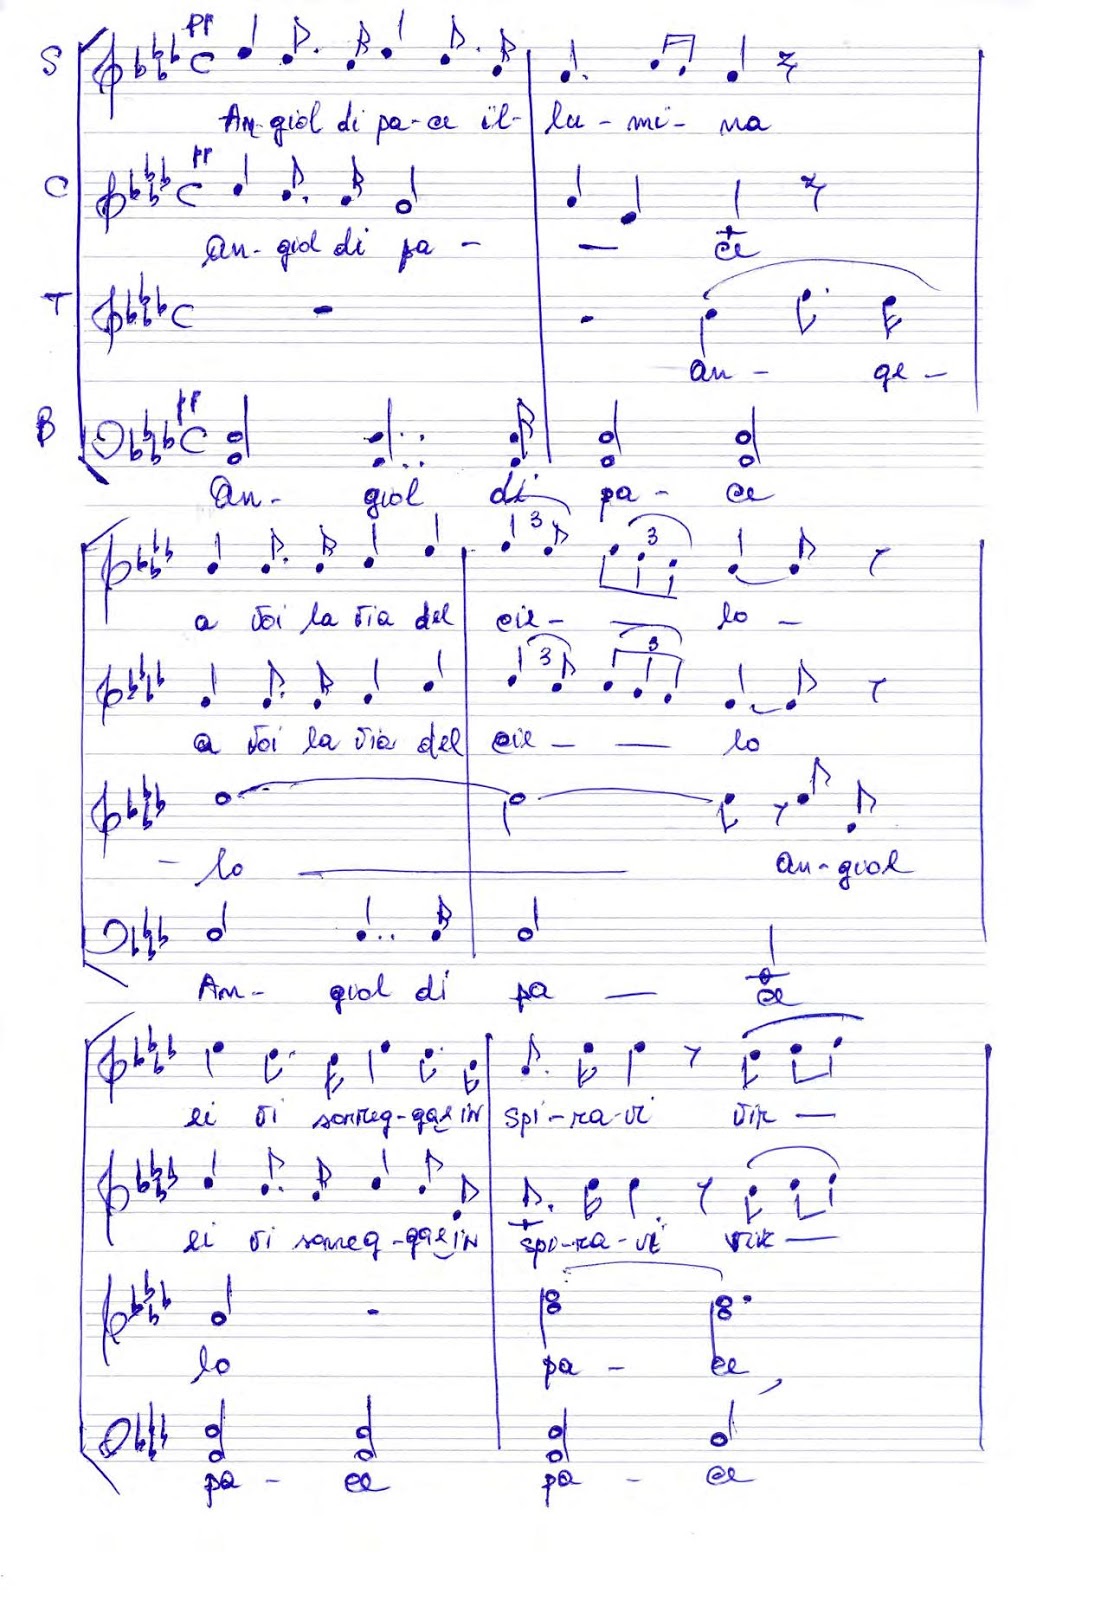 pp
S
An-giol di pa-ce il-lu-mi-na
pp
C
An-giol di pa- — ce
T
an- ge-
pp
B
An- giol di pa- ce
3 3
a voi la via del cie- — lo -
3 3
a voi la via del cie- — lo
- lo — an-giol
An- giol di pa — ce
ei vi sorreg-ga e in spi-ra-vi vir —
ei vi sorreg-ga e in spi-ra-vi vir —
lo pa - ce,
pa - ce pa - ce